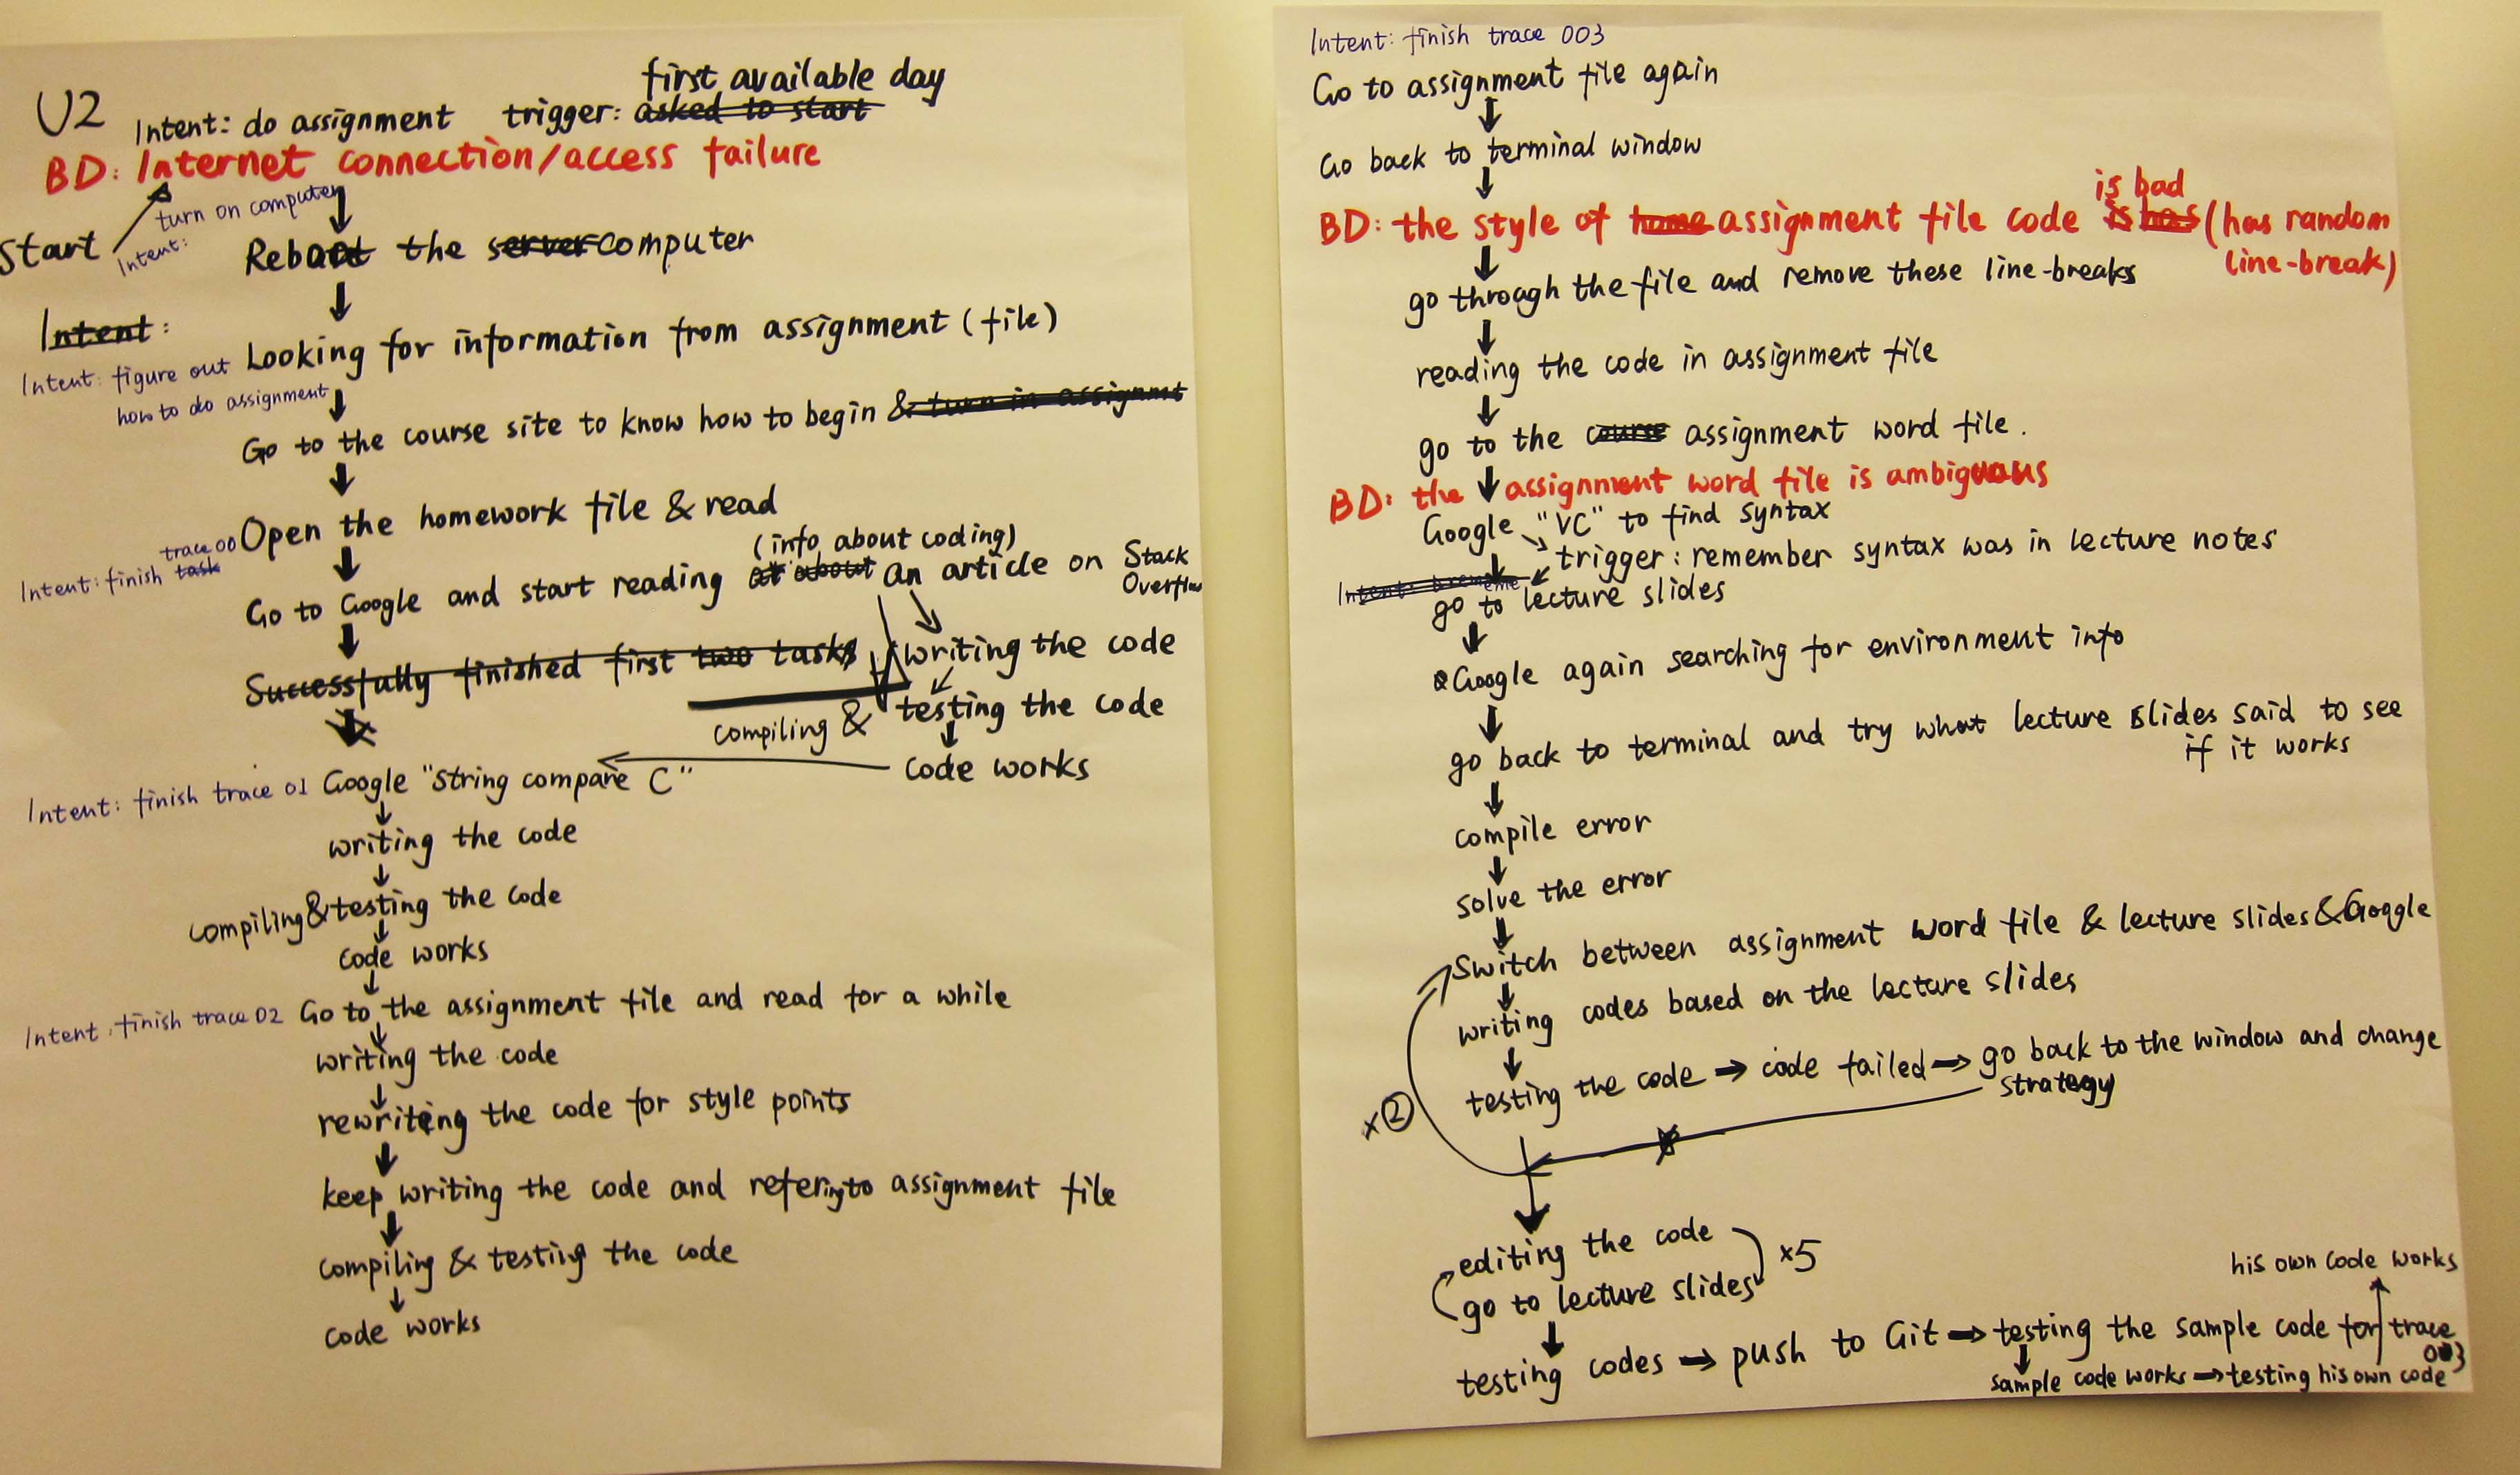 first available day
U2 Intent: do assignment trigger: asked to start
BD: Internet connection/access failure
turn on computer
Start Intent:
Reboot the server computer
Intent:
Looking for information from assignment (file)
Intent: figure out
how to do assignment
Go to the course site to know how to begin & turn in assignmt
Open the homework file & read
trace 00
Intent: finish task
(info about coding)
Go to Google and start reading at about an article on Stack
Overflow
Successfully finished first two tasks
writing the code
compiling & testing the code
code works
Intent: finish trace 01 Google "string compare C"
writing the code
compiling & testing the code
code works
Intent: finish trace 02 Go to the assignment file and read for a while
writing the code
rewriting the code for style points
keep writing the code and refering to assignment file
compiling & testing the code
code works
Intent: finish trace 003
Go to assignment file again
Go back to terminal window
is bad
BD: the style of home assignment file code is has (has random
line-break)
go through the file and remove these line-breaks
reading the code in assignment file
go to the course assignment word file.
BD: the assignment word file is ambiguous
Google "VC" to find syntax
trigger: remember syntax was in lecture notes
Intent:
go to lecture slides
Google again searching for environment info
go back to terminal and try what lecture slides said to see
if it works
compile error
solve the error
Switch between assignment word file & lecture slides & Google
writing codes based on the lecture slides
testing the code → code failed → go back to the window and change
strategy
x②
editing the code
x5
go to lecture slides
his own code works
testing codes → push to Git → testing the sample code for trace
003
sample code works → testing his own code